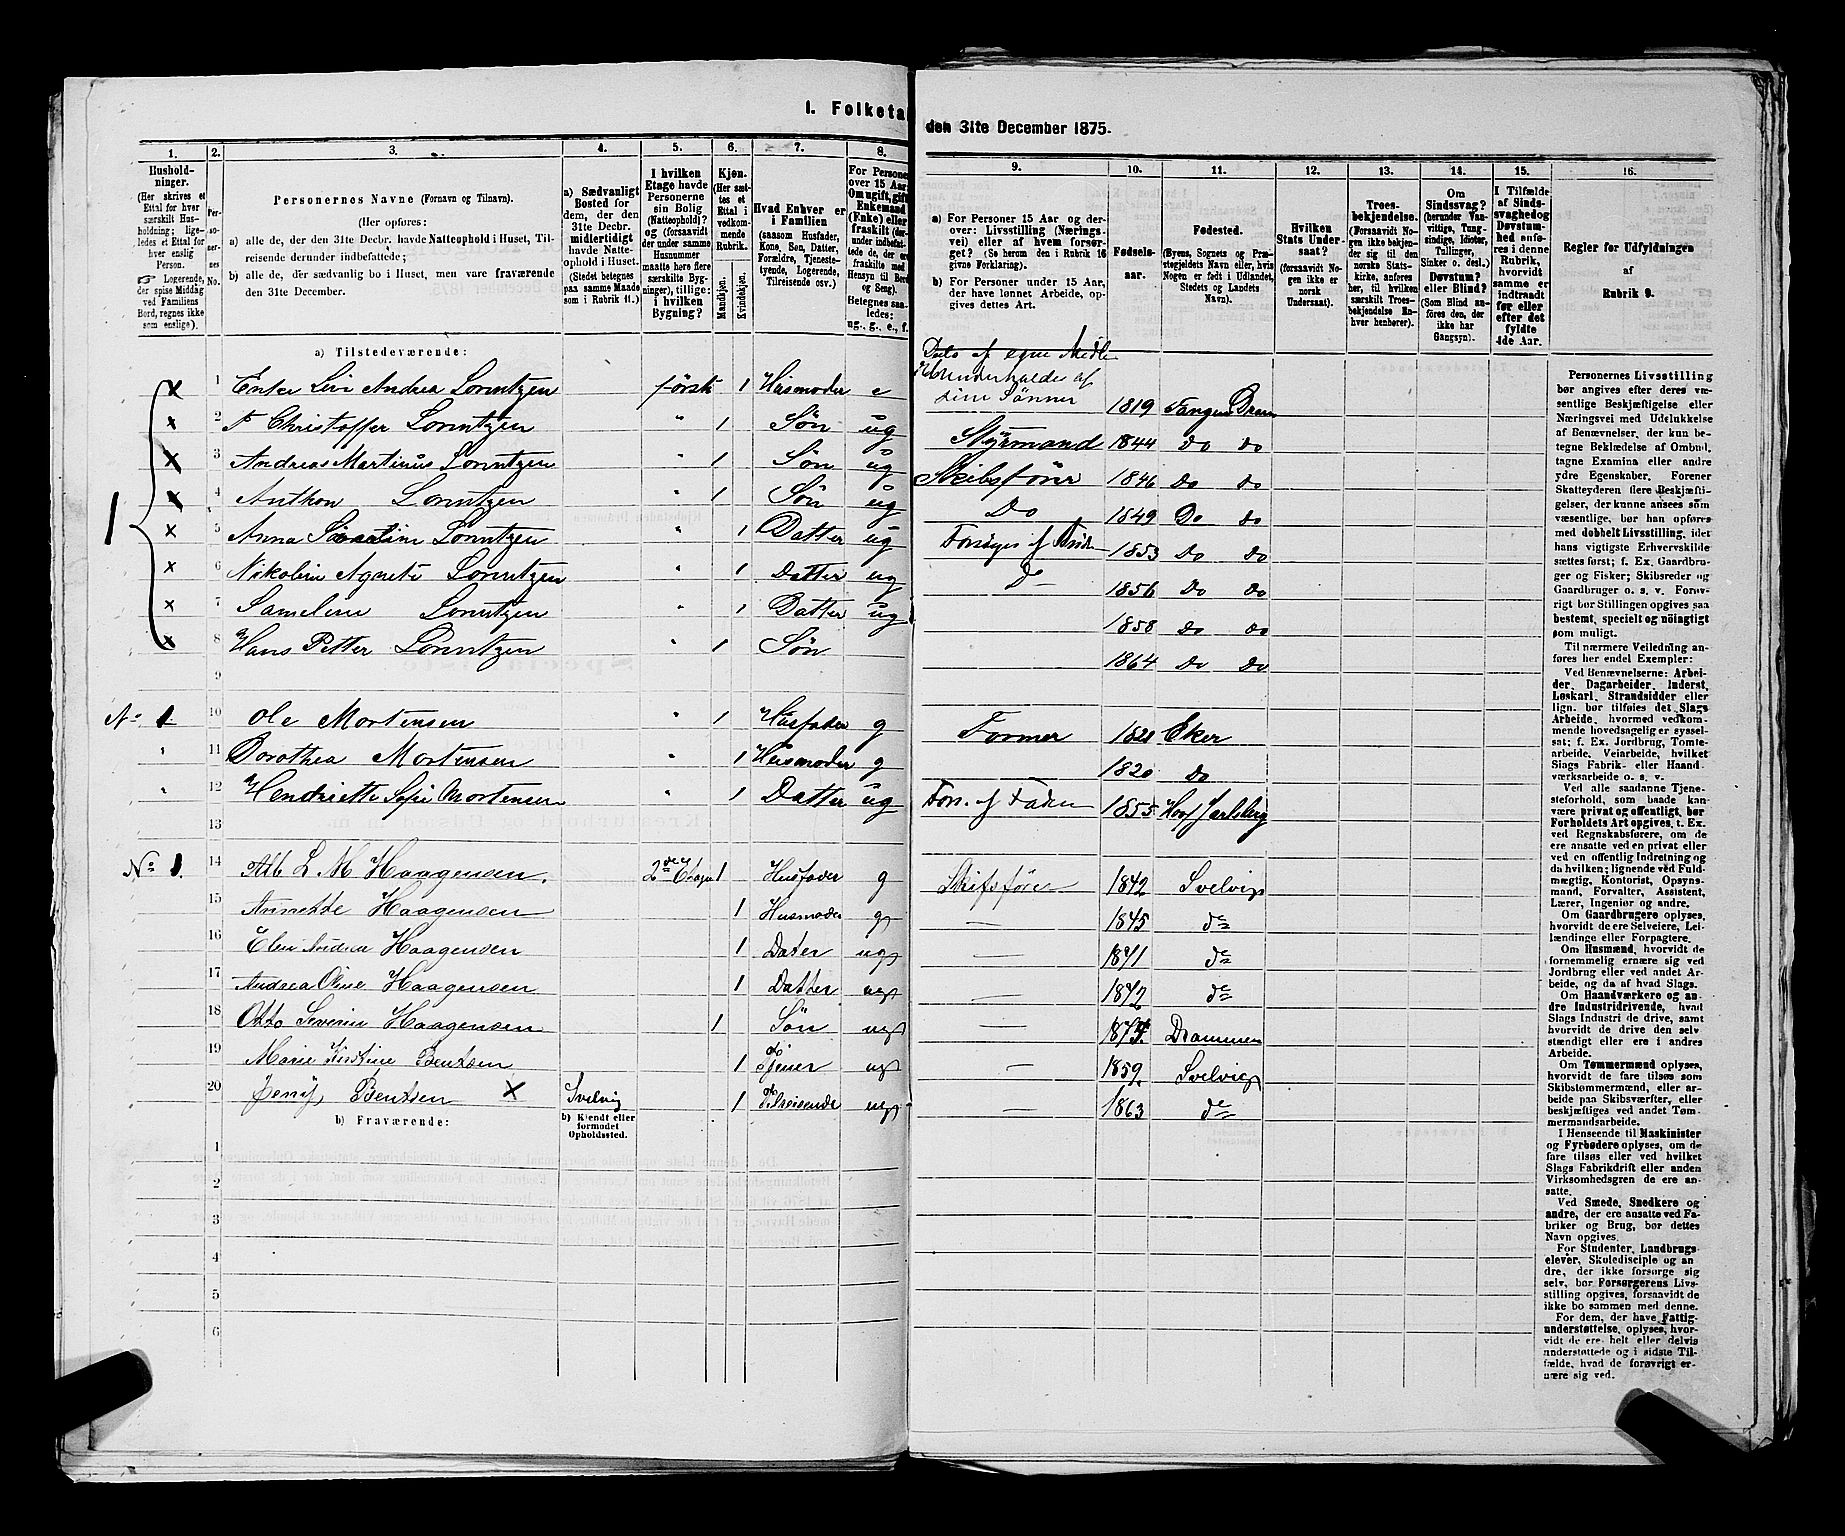 I. Folketal
den 31te December 1875.
1.
Hushold-
ninger.
(Her skrives et
Ettal for hver
særskilt Hus-
holdning; lige-
ledes et Ettal for
hver enslig
Person.
Logerende,
der spise Middag
ved Familiens
Bord, regnes ikke
som enslige).
2.
Per-
soner-
nes
No.
3.
Personernes Navne (Fornavn og Tilnavn).
(Her opføres:
a) alle de, der den 31te Decbr. havde Natteophold i Huset, Til-
reisende derunder indbefattede;
b) alle de, der sædvanlig bo i Huset, men vare fraværende
den 31te December.
4.
a) Sædvanligt
Bosted for
dem, der den
31te Decbr.
midlertidigt
havde Natte-
ophold i Huset.
(Stedet betegnes
paa samme Maade
som i Rubrik 11.)
5.
I hvilken
Etage havde
Personerne
sin Bolig
(Natteophold)?
og (forsaavidt
der under samme
Husnummer
maatte høre flere
særskilte Byg-
ninger), tillige:
i hvilken
Bygning?
6.
Kjøn.
(Her sæt-
tes et
Ettal i
vedkom-
mende
Rubrik.
Mandkjøn.
Kvindekjøn.
7.
Hvad Enhver er
i Familien
(saasom Husfader,
Kone, Søn, Datter,
Forældre, Tjeneste-
tyende, Logerende,
Tilreisende osv.)
8.
For Personer
over 15 Aar:
Om ugift, gift,
Enkemand
(Enke) eller
fraskilt
Betegnes saa-
ledes:
ug., g., e., f.
9.
a) For Personer 15 Aar og der-
over: Livsstilling (Nærings-
vei) eller af hvem forsør-
get? (Se herom den i Rubrik 16
givne Forklaring).
b) For Personer under 15 Aar,
der have lønnet Arbeide, op-
gives dettes Art.
10.
Fødsels-
aar.
11.
Fødested.
(Byens, Sognets og Præ-
stegjeldets Navn eller, hvis
Nogen er født i Udlandet,
Stedets og Landets
Navn).
12.
Hvilken
Stats Under-
saat?
(forsaavidt No-
gen ikke er
norsk
Undersaat).
13.
Troes-
bekjendelse.
(Forsaavidt No-
gen ikke bekjen-
der sig til den
norske Stats-
kirke, anføres
her, til hvilken
særskilt Troes-
bekjendelse En-
hver henhører).
14.
Om
Sindssvag?
(herunder Van-
vittige, Tung-
sindige, Idioter,
Tullinger,
Sinker o. desl.)
Døvstum?
eller Blind?
(Som Blind an-
føres den, der
ikke har
Gangsyn).
15.
I Tilfælde
af Sinds-
svaghed og
Døvstum-
hed anfø-
res i denne
Rubrik,
hvorvidt
samme er
indtraadt
før eller
efter det
fyldte
4de Aar.
16.
Regler for Udfyldningen
af
Rubrik 9.
a) Tilstedeværende:
1 Enke Lini Andrea Lorentzen først 1 Husmoder e Dels af egne Midler underholdes af sine Sønner 1819 Tangen Dram
2 F Christoffer Lorentzen " 1 Søn ug Styrmand 1844 do do
3 Andreas Martinus Lorentzen " 1 Søn ug Skibsfører 1846 do do
4 Anthon Lorentzen " 1 Søn ug Do 1849 Do do
5 Anna Lorentzen " 1 Datter ug 1853 do do
6 Nikoline Agnete Lorentzen " 1 Datter ug Do 1856 do do
7 Lorentzen " 1 Datter ug 1858 do do
8 Hans Petter Lorentzen " 1 Søn 1864 do do
9
No 1 10 Ole Mortensen " 1 Husfader g Former 1821 Eker
" 11 Dorothea Mortensen " 1 Husmoder g 1820 do
" 12 Henriette Sofie Mortensen " 1 Datter ug Fors. af Faderen 1855 Hoof Jarlsberg
13
No 1 14 Alb L M Haagensen. 2den Etage 1 Husfader g Skibsfører 1842 Svelvig
15 Annette Haagensen 1 Husmoder g — 1845 do
16 Elen Andrea Haagensen 1 Dater ug — 1841 do
17 Andrea Oline Haagensen 1 Datter ug — 1842 do
18 Otto Severin Haagensen 1 Søn ug — 1874 Drammen
19 Marie Kirstine Bentsen 1 Tjener ug — 1859 Svelvig
20 Jenny Bentsen X Svelvig 1 Tilreisende ug — 1863 do
b) Fraværende:
b) Kjendt eller
formodet
Opholdssted.
1
2
3
4
5
6
Personernes Livsstilling
bør angives efter deres væ-
sentlige Beskjæftigelse eller
Næringsvei med Udelukkelse
af Benævnelser, der kun be-
tegne Beklædelse af Ombud,
tagne Examina eller andre
ydre Egenskaber. Forener
Skatteyderen flere Beskjæfti-
gelser, der kunne ansees som
væsentlige, bør han opføres
med dobbelt Livsstilling, idet
hans vigtigste Erhvervskilde
sættes først; f. Ex. Gaardbru-
ger og Fisker; Skibsreder og
Gaardbruger o. s. v. Forøv-
rigt bør Stillingen opgives saa
bestemt, specielt og nøiagtigt
som muligt.
Til nærmere Veiledning an-
føres her endel Exempler:
Ved Benævnelserne: Arbei-
der, Dagarbeider, Inderst,
Løskarl, Strandsidder eller
lign. bør tilføies det Slags
Arbeide, hvormed vedkom-
mende hovedsagelig er syssel-
sat; f. Ex. Jordbrug, Tomte-
arbeide, Veiarbeide, hvilket
Slags Fabrik- eller Haand-
værksarbeide o. s. v.
Ved alle saadanne Tjene-
steforhold, som baade kan-
være privat og offentligt, bør
Forholdets Art opgives, t. Ex.
ved Regnskabsførere, om de
ere ansatte ved en privat eller
ved en offentlig Indretning og
da hvilken; lignende ved Fuld-
mægtig, Kontorist, Opsyns-
mand, Forvalter, Assistent,
Lærer, Ingeniør og andre.
Om Gaardbrugere oplyses,
hvorvidt de ere Selveiere, Lei-
lændinge eller Forpagtere.
Om Husmænd, hvorvidt de
fornemmelig ernære sig ved
Jordbrug eller ved andet Ar-
beide, og da af hvad Slags.
Om Haandværkere og an-
dre Industridrivende, hvad
Slags Industri de drive, samt
hvorvidt de drive den selv-
stændigt eller ere i andres
Arbeide.
Om Tømmermænd oplyses,
hvorvidt de fare tilsøs som
Skibstømmermænd, eller ar-
beide paa Skibsværfter, eller
beskjæftiges ved andet Tøm-
mermandsarbeide.
I Henseende til Maskinister
og Fyrbødere oplyses, om de
fare tilsøs eller ved hvilket
Slags Fabrikdrift eller anden
Virksomhedsgren de ere an-
satte.
Ved Smede, Snedkere og
andre, der ere ansatte ved Fa-
briker og Brug, bør dettes
Navn opgives.
For Studenter, Landbrugs-
elever, Skoledisciple og an-
dre, der ikke forsørge sig
selv, bør Forsørgerens Livs-
stilling opgives, forsaavidt de
ikke bo sammen med denne.
For dem, der have Fattig-
understøttelse, oplyses, hvor-
vidt de ere helt eller delvis
understøttede og i sidste Til-
fælde, hvad de forøvrigt er-
nære sig ved.